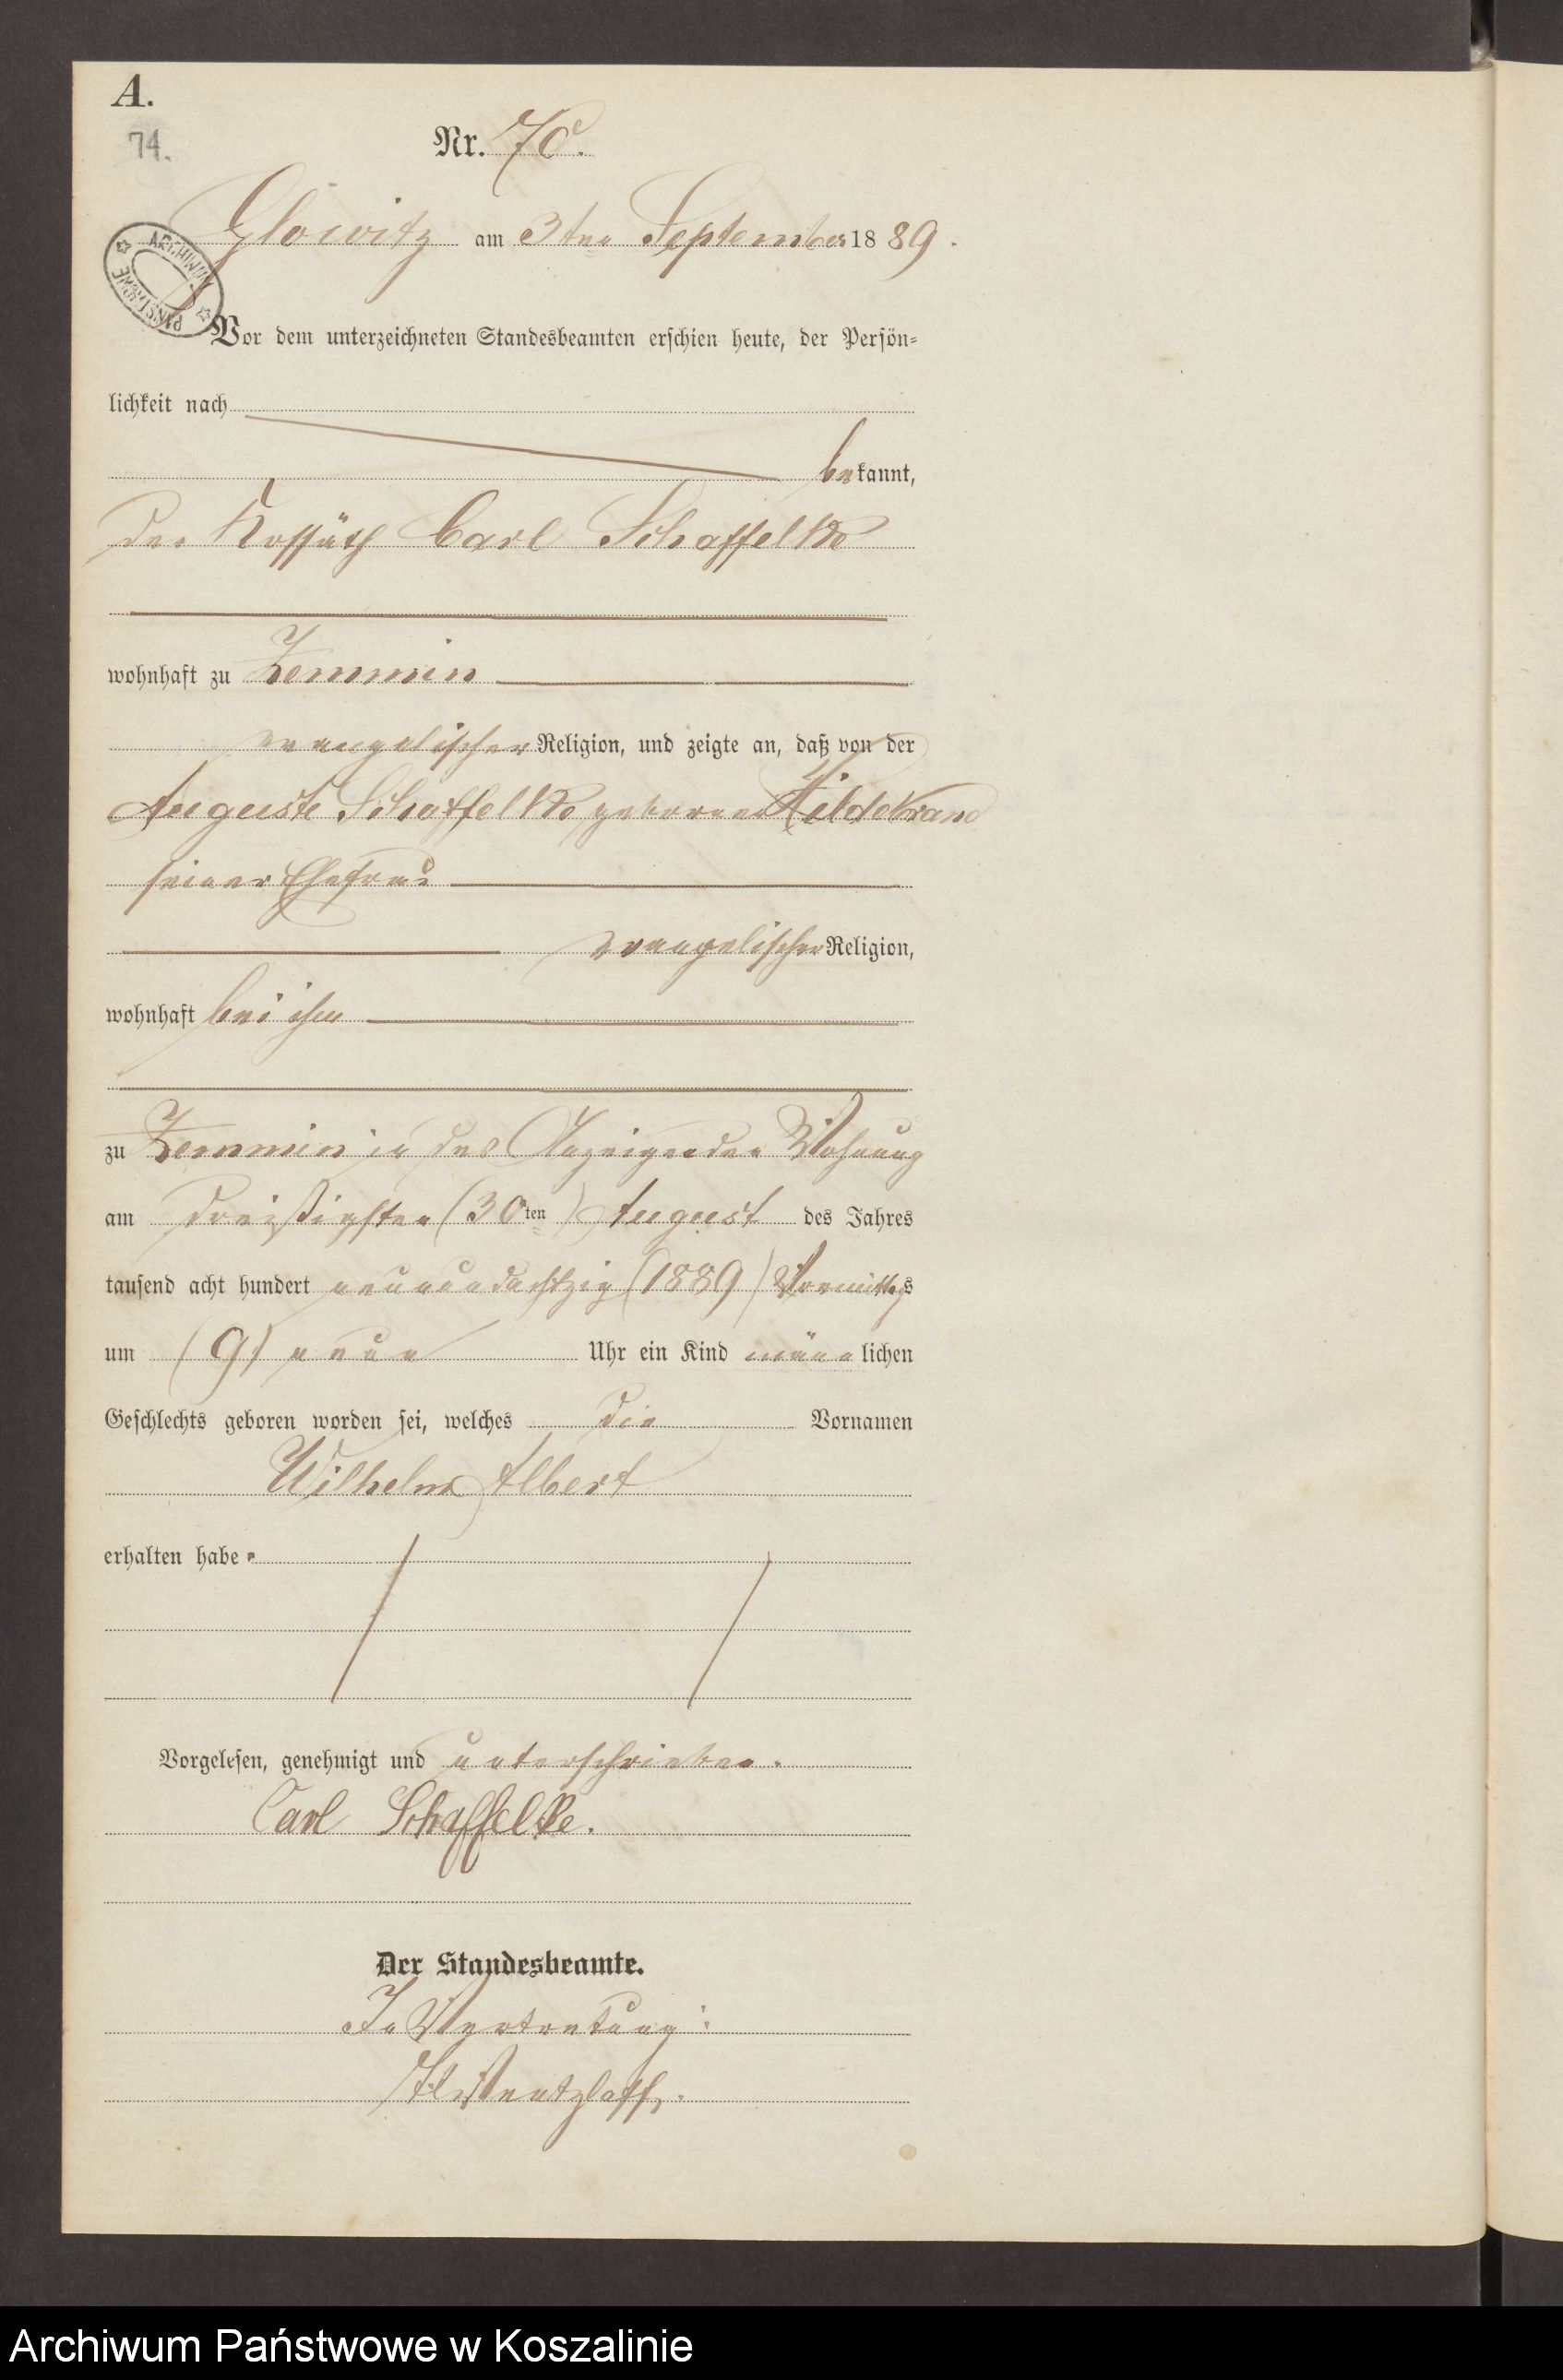 A.
74.
Nr. 70.
Glowitz am 3ten September 1889.
ARCHIWUM PAŃSTWOWE
Vor dem unterzeichneten Standesbeamten erschien heute, der Persön=
lichkeit nach
bekannt,
der Kossäth Carl Schaffelke
wohnhaft zu Zemmin
evangelischer Religion, und zeigte an, daß von der
Auguste Schaffelke, geborenen Hildebrand
seiner Ehefrau
evangelischer Religion,
wohnhaft bei ihm
zu Zemmin in des Anzeigenden Wohnung
am dreißigsten (30ten) August des Jahres
tausend acht hundert neunundachtzig (1889) Vormittags
um (9) neun Uhr ein Kind männlichen
Geschlechts geboren worden sei, welches die Vornamen
Wilhelm Albert
erhalten habe.
Vorgelesen, genehmigt und unterschrieben.
Carl Schaffelke.
Der Standesbeamte.
In Vertretung:
Wentzlaff.
Archiwum Państwowe w Koszalinie